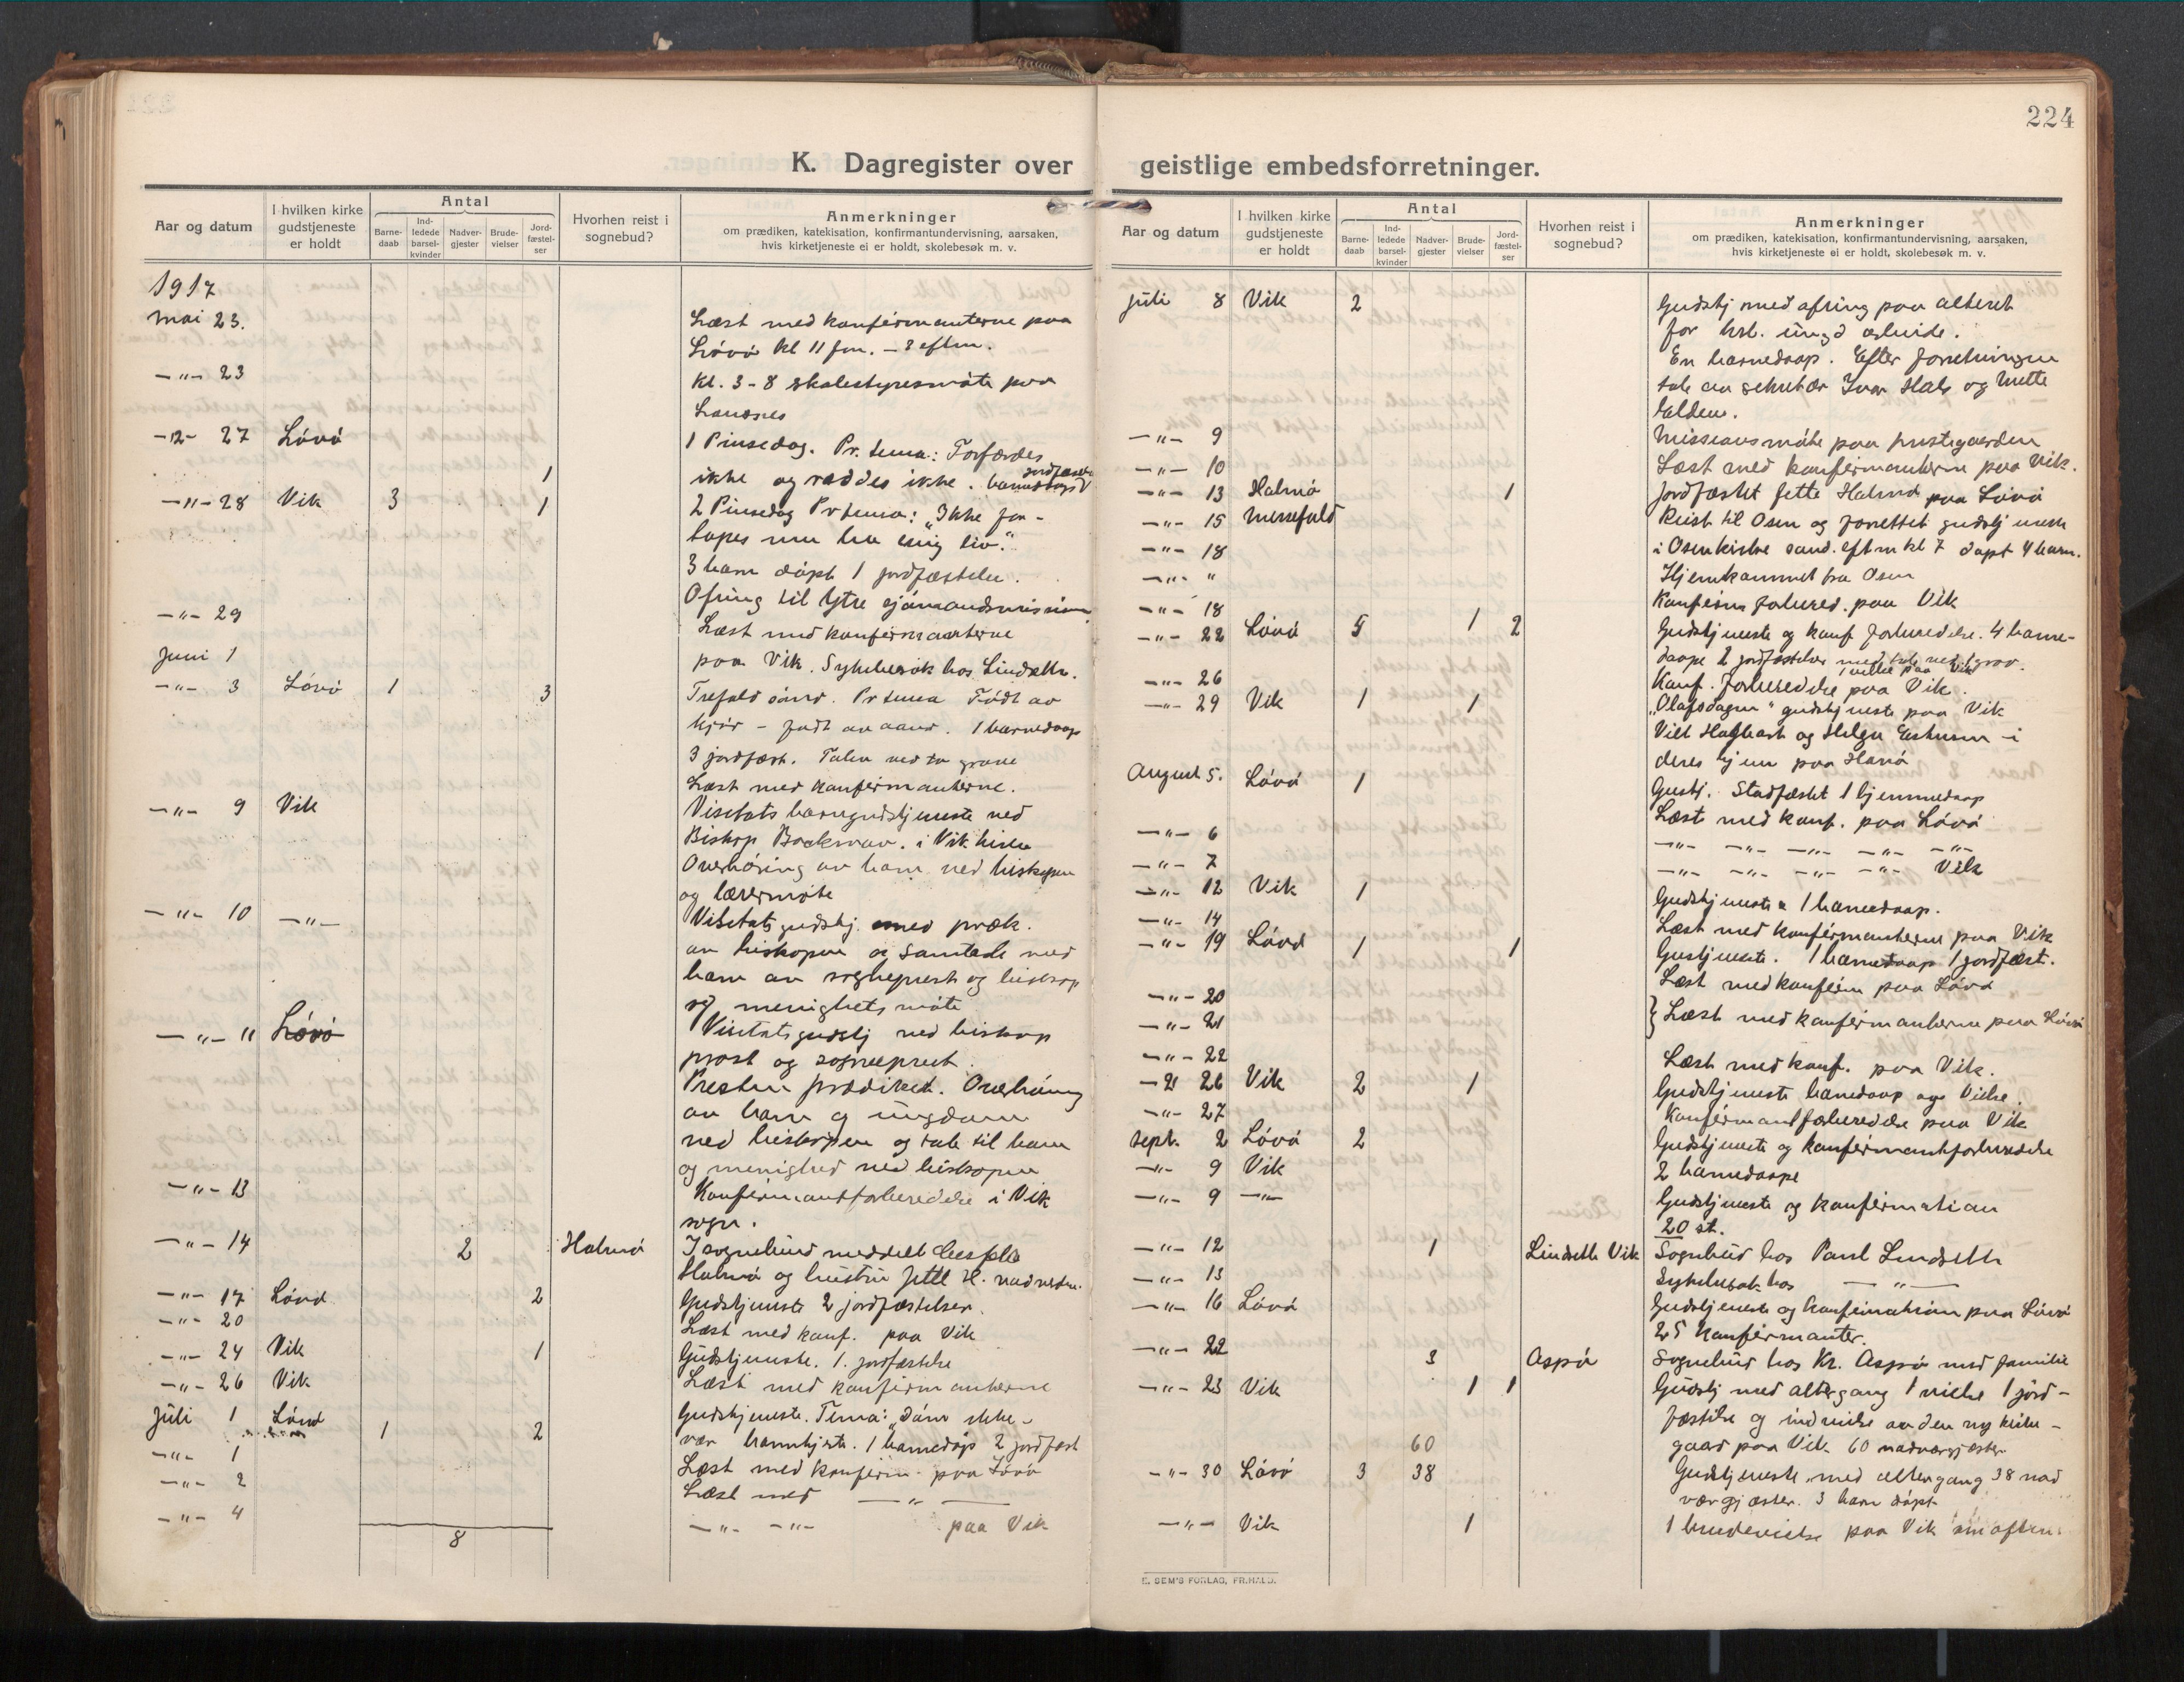 224
K. Dagregister over geistlige embedsforretninger.
Aar og datum
I hvilken kirke gudstjeneste er holdt
Antal
Barne-daab
Ind-ledede barsel-kvinder
Nadver-gjester
Brude-vielser
Jord-fæstel-ser
Hvorhen reist i sognebud?
Anmerkninger
om prædiken, katekisation, konfirmantundervisning, aarsaken,
hvis kirketjeneste ei er holdt, skolebesøk m. v.
1917
mai 23. Læst med konfirmanterne paa
Løvø kl 11 fm. – 3 eftm.
–"– 23 Kl. 3-8 skolestyresmøte paa
27 Løvø 1 Pinsedag. Pr. tema: Forfærdes
1 ikke og ræddes ikke.
–"– 28 Vik 3 1 2 Pinsedag Pr tema: "Ikke for-
tapes men ha evig liv."
3 barn døpt 1 jordfæstelse.
Ofring til Ytre sjømandsmission
–"– 29 Læst med konfirmanterne
Juni 1 paa Vik. Sykebesøk hos Lindseth.
–"– 3 Løvø 1 3 Trefold. sønd. Pr tema Født av
kjød – født av aand. 1 barnedaap
3 jordfæst. Taler ved to grave
Læst med konfirmanterne.
–"– 9 Vik Visitats barnegudstjeneste ved
Biskop Böckman. i Vik kirke
Overhøring av barn ved biskopen
og lærermøte
–"– 10 –"– Visitats gudstj. med præk.
av biskopen og samtale med
barn av sogneprest og biskop
og menighets møte
–"– 11 Løvø Visitatsgudstj ved biskop
prost og sogneprest.
Presten prædiket. Overhøring
av barn og ungdom
ved biskopen og tale til barn
og menighed ved biskopen
–"– 13 Konfirmantforberedelse i Vik
sogn.
–"– 14 2 Halmø I sognebud meddelt
Halmø og hustru Jette H. nadverden.
–"– 17 Løvø 2 Gudstjeneste 2 jordfæstelser.
–"– 20 Læst med konf. paa Vik
–"– 24 Vik 1 Gudstjeneste. 1. jordfæstelse
–"– 26 Vik Læst med konfirmanterne
Juli 1 Løvø 1 2 Gudstjeneste. Tema: "Døm ikke –
vær barmhjert. 1 barnedåp 2 jordfæst
–"– 1 Læst med konfirm. paa Løvø
–"– 2 Læst med –"–
–"– 4 –"– –"– paa Vik
8
Aar og datum
I hvilken kirke gudstjeneste er holdt
Antal
Barne-daab
Ind-ledede barsel-kvinder
Nadver-gjester
Brude-vielser
Jord-fæstel-ser
Hvorhen reist i sognebud?
Anmerkninger
om prædiken, katekisation, konfirmantundervisning, aarsaken,
hvis kirketjeneste ei er holdt, skolebesøk m. v.
Juli 8 Vik 2 Gudstj med ofring paa alteret
for krl. ungd arbeide.
En barnedaap. Efter forretningen
tale av sekretær Ivar Hals og Mette
–"– 9 Missionsmøte paa prestegaarden
–"– 10 Læst med konfirmanterne paa Vik.
–"– 13 Halmø 1 Jordfæstet Jette Halmø paa Løvø
–"– 15 Messefald Reist til Osen og forrettet gudstjeneste
–"– 18 i Osen kirke sønd. eftm kl 7 døpt 4 barn.
–"– " Hjemkommet fra Osen
–"– 18 Konfirm forbered. paa Vik
–"– 22 Løvø 5 1 2 Gudstjeneste og konf forberedelse. 4 barne-
daape 2 jordfæstelser med tale ved 1 grav.
1 vielse paa Vik
–"– 26 Konf. forberedelse paa Vik.
–"– 29 Vik 1 1 "Olafsdagen" gudstjeneste paa Vik
Viet
deres hjem paa
August 5. Løvø 1 Gustj. Stadfæstet 1 hjemmedaap
Læste med konf. paa Løvø
–"– 6 –"– –"– –"– –"– –"–
–"– 7 –"– –"– –"– –"– Vik
–"– 12 Vik 1 Gudstjeneste 1 barnedaap.
–"– 14 Læst med konfirmanterne paa Vik
–"– 19 Løvø 1 1 Gustjeneste. 1 barnedaap 1 jordfæst.
–"– 20 Læst med konfirm paa Løvø
–"– 21 } Læst med konfirmanterne paa Løvø
–"– 22 Læst med konf. paa Vik.
26 Vik 2 1 Gudstjeneste barnedaap og Vielse.
–"– 27 Konfirmantforberedelse paa Vik
Sept. 2 Løvø 2 Gudstjeneste og konfirmantforberedelse
2 barnedaape
–"– 9 Vik
–"– 9 –"– Gudstjeneste og konfirmation
20 st.
–"– 12 1 Lindseth Vik Sognebud hos Paul Lindseth
–"– 13 Sykebesøk hos –"–
–"– 16 Løvø Gudstjeneste og konfirmation paa Løvø
25 Konfirmanter.
–"– 22 3 Aspø Sognebud hos Kr. Aspø med familie
–"– 23 Vik 1 1 Gudstj med altergang 1 vielse 1 jord-
fæstelse og indvielse av den ny kirke-
60 gaard paa Vik 60 nadvergjæster
–"– 30 Løvø 3 38 Gudstjeneste med altergang 38 nad
vergjæster. 3 barn døpt
–"– Vik 1 1 brudevielse paa Vik om aftenen
E. SEM'S FORLAG, FR.HALD.